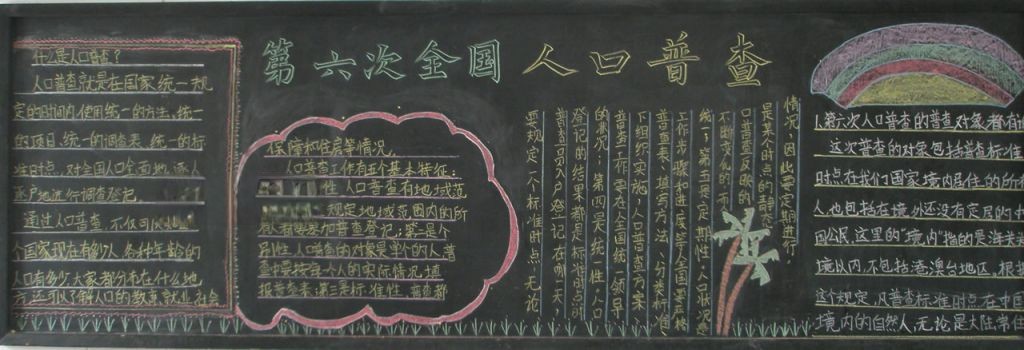 第六次全国人口普查
什么是人口普查?
人口普查就是在国家统一规
定的时间内,使用统一的方法、统一
的项目、统一的调查表、统一的标
准时点,对全国人口全面地、逐人
逐户地进行调查登记。
通过人口普查,不仅可
个国家现在有多少人,各种年龄的
人口有多少,大家都分布在什么地
方,还可以了解人口的教育、就业、社会
保障和住房等情况。
人口普查工作有五个基本特征:
性,人口普查有地域范
规定地域范围内的所
有人都要参加普查登记;第二是个
别性,人口普查的对象是单个的人,普
查中要按每个人的实际情况填
报普查表;第三是标准性,普查都
要规定一个标准时点,无论
普查员入户登记在哪一天,
登记的结果都是标准时点的
情况;第四是统一性,人口
普查工作要在全国统一领导
下组织实施,人口普查的方案、
普查表、填写方法、分类标准、
工作步骤和进度等全国要严格
统一;第五是定期性,人口状况是
不断变化的,人口普查反映的
是某个时点的静态
情况,因此要定期进行。
1.第六次人口普查的普查对象都有
这次普查的对象包括普查标准
时点在我们国家境内居住的所有
人,也包括在境外还没有定居的中
国公民。这里的“境内”指的是海关
境以内,不包括港澳台地区。根据
这个规定,凡普查标准时点在中国
境内的自然人,无论是大陆常住